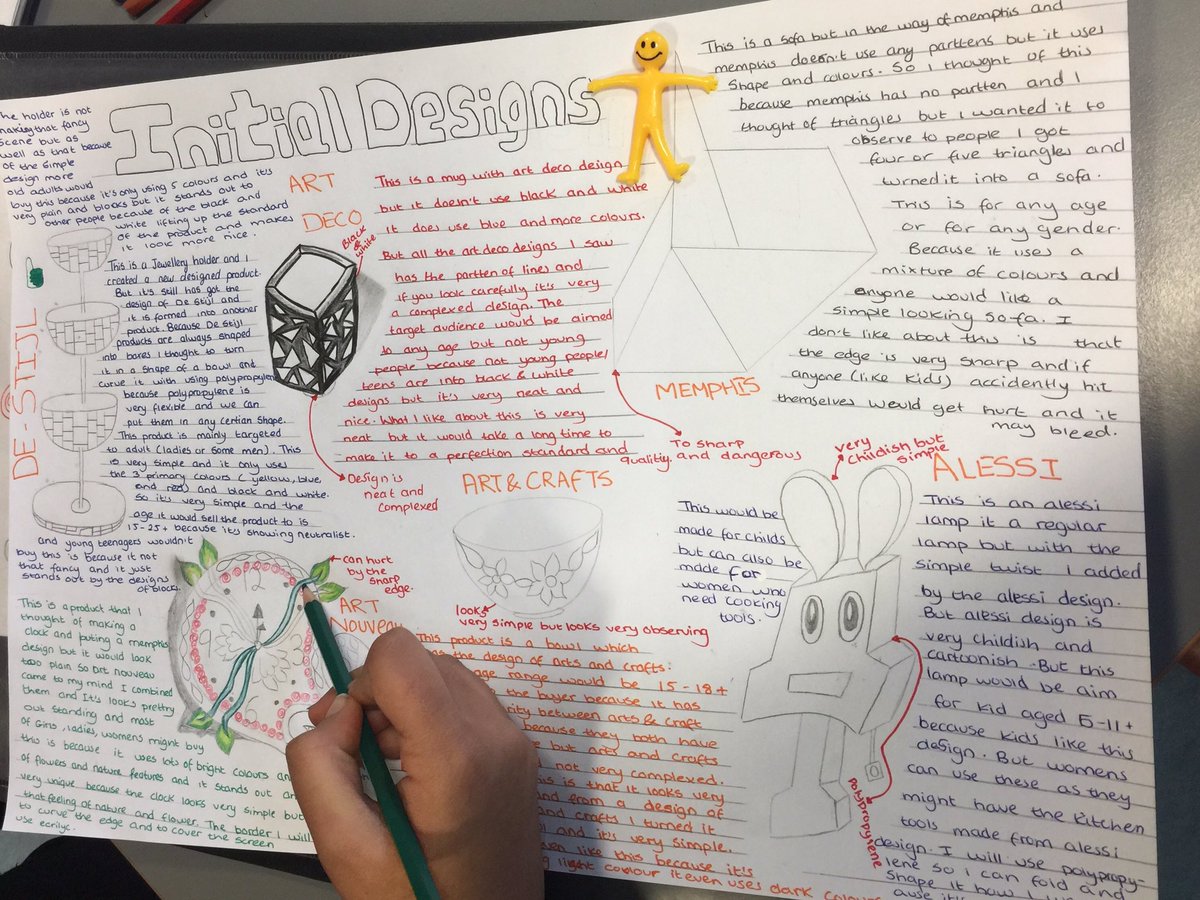 Initial Designs
The holder is not
making that fancy
Scene but as
well as that because
of the Simple
design more
old adults would
buy this because it's only using 5 colours and it's
very plain and blocks but it stands out to
other people because of the black and
white lifting up the standard
of the product and makes
it look more nice.
DE-STIJL
This is a Jewellery holder and I
created a new designed product.
But it's still has got the
design of De Stijl and
it is formed into another
product. Because De Stijl
products are always shaped
into boxes I thought to turn
it in a shape of a bowl and
curve it with using polypropylene
because polypropylene is
very flexible and we can
put them in any certian shape.
This product is mainly targeted
to adult (ladies or some men). This
is very simple and it only uses
the 3 primary colours (yellow, blue,
and red) and black and white.
So it's very simple and the
age it would sell the product to is
15-25+ because it's showing neutralist.
and young teenagers wouldn't
buy this is because it not
that fancy and it just
stands out by the designs
of blocks.
ART
DECO
Black &
white
This is a mug with art deco design
but it doesn't use black and white
it does use blue and more colours.
But all the art deco designs I saw
has the partten of lines and
if you look carefully it's very
a complexed design. The
target audience would be aimed
to any age but not young
people because not young people/
teens are into black & white
designs but it's very neat and
nice. What I like about this is very
neat but it would take a long time to
make it to a perfection standard and
quality.
Design is
neat and
complexed
This is a sofa but in the way of memphis and
memphis doesn't use any parttens but it uses
Shape and colours. So I thought of this
because memphis has no partten and I
thought of triangles but I wanted it to
observe to people I got
four or five triangles and
turned it into a sofa.
This is for any age
or for any gender.
Because it uses a
mixture of colours and
anyone would like a
simple looking sofa. I
don't like about this is that
the edge is very sharp and if
anyone (like kids) accidently hit
themselves would get hurt and it
may bleed.
MEMPHIS
To sharp
and dangerous
ART & CRAFTS
looks
very simple but looks very observing
This product is a bowl which
the design of arts and crafts.
age range would be 15-18+
the buyer because it has
between arts & craft
because they both have
but arts and crafts
not very complexed.
is that it looks very
and from a design of
and crafts I turned it
and it's very simple.
like this because it's
light colour it even uses dark
This would be
made for childs
but can also be
made for
women who
need cooking
tools.
very
childish but
simple
ALESSI
This is an alessi
lamp it a regular
lamp but with the
simple twist I added
by the alessi design.
But alessi design is
very childish and
cartoonish. But this
lamp would be aim
for kid aged 5-11+
because kids like this
design. But womens
can use these as they
might have the kitchen
tools made from alessi
design. I will use polypropy-
lene so I can fold and
Shape it how I
polypropylene
can hurt
by the
sharp
edge.
ART
NOUVEAU
This is a product that I
thought of making a
clock and puting a memphis
design but it would look
two plain so art nouveau
came to my mind I combined
them and It's looks prettry
out standing and most
of Girls, ladies, womens might buy
this is because it uses lots of bright colours
of flowers and nature features and it stands out
very unique because the clock looks very simple but
that feeling of nature and flower. The border I will
to curve the edge and to cover the screen
use ecrilyc.
12